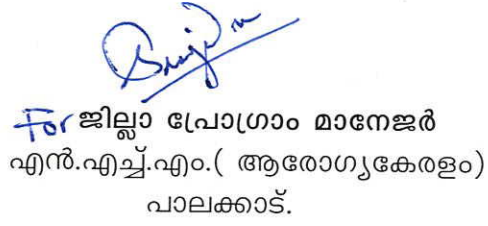 For ജില്ലാ പ്രോഗ്രാം മാനേജർ
എൻ.എച്ച്.എം.( ആരോഗ്യകേരളം)
പാലക്കാട്.